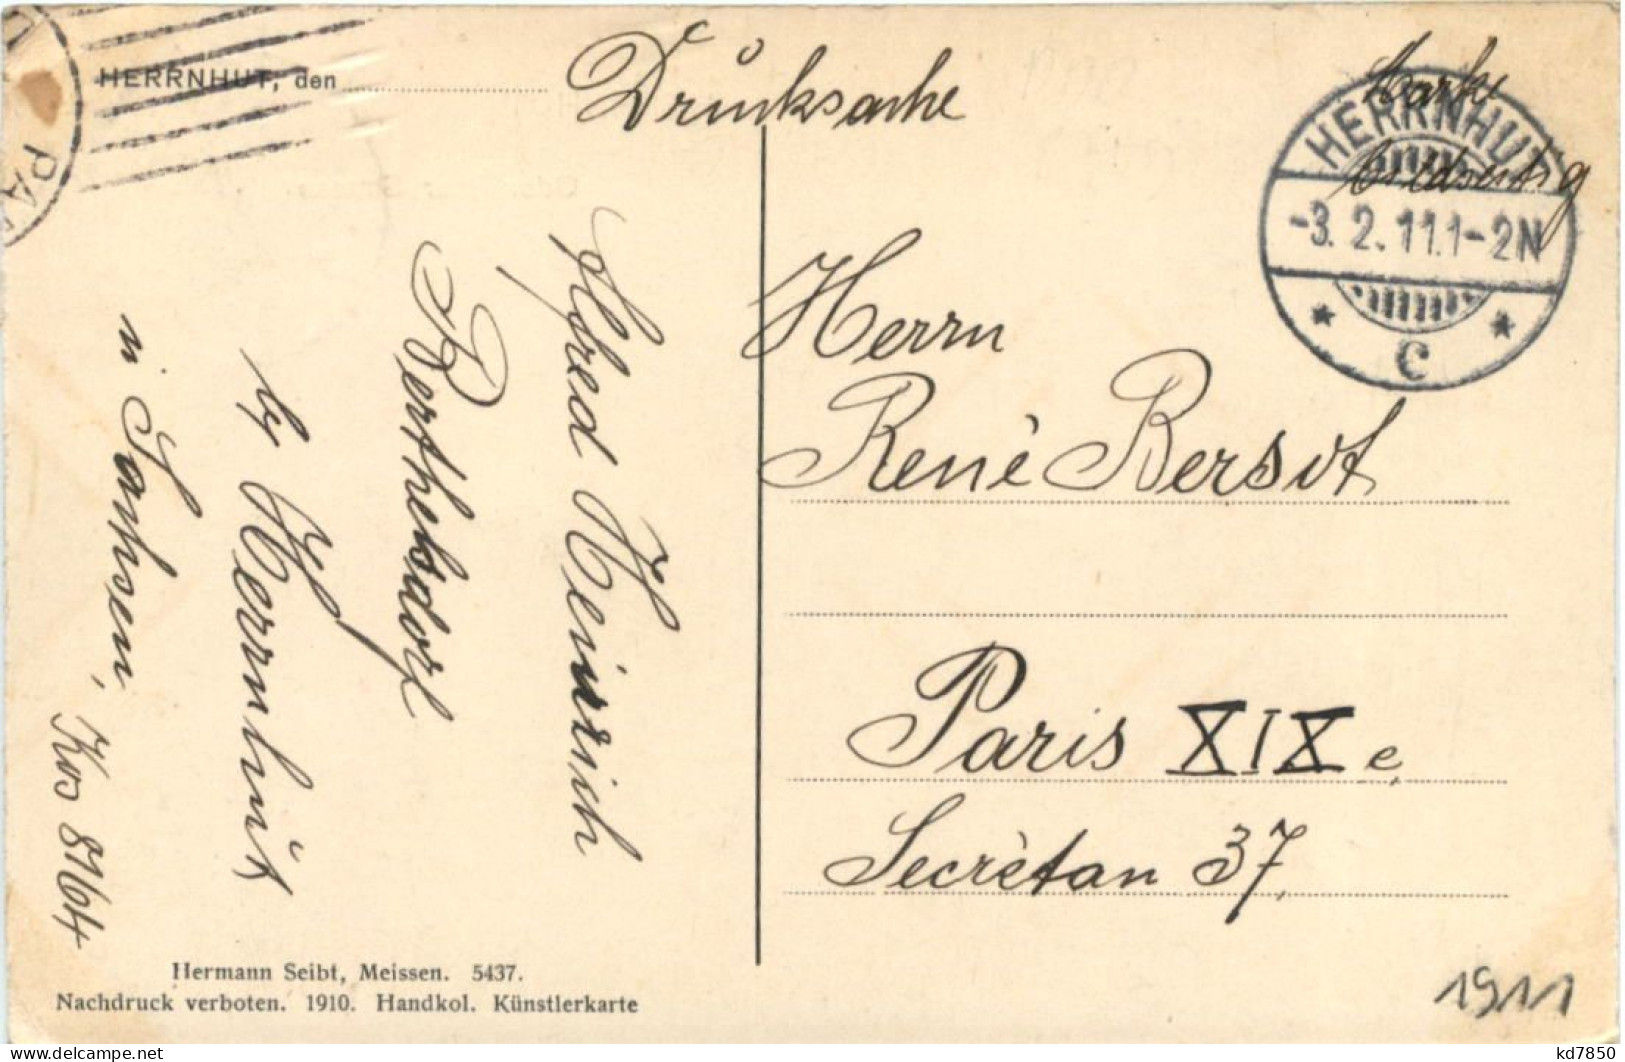 HERRNHUT, den
PA
Drucksache
Marke
bildseitig
HERRNHUT
-3. 2. 11. 1-2N
* C *
Herrn
René Bersot
Paris XIXe
Secrètan 37.
Alfred Heinrich
Berthelsdorf
b/ Herrnhut
i/ Sachsen,
Kos 8164
Hermann Seibt, Meissen. 5437.
Nachdruck verboten. 1910. Handkol. Künstlerkarte
1911
kd7850